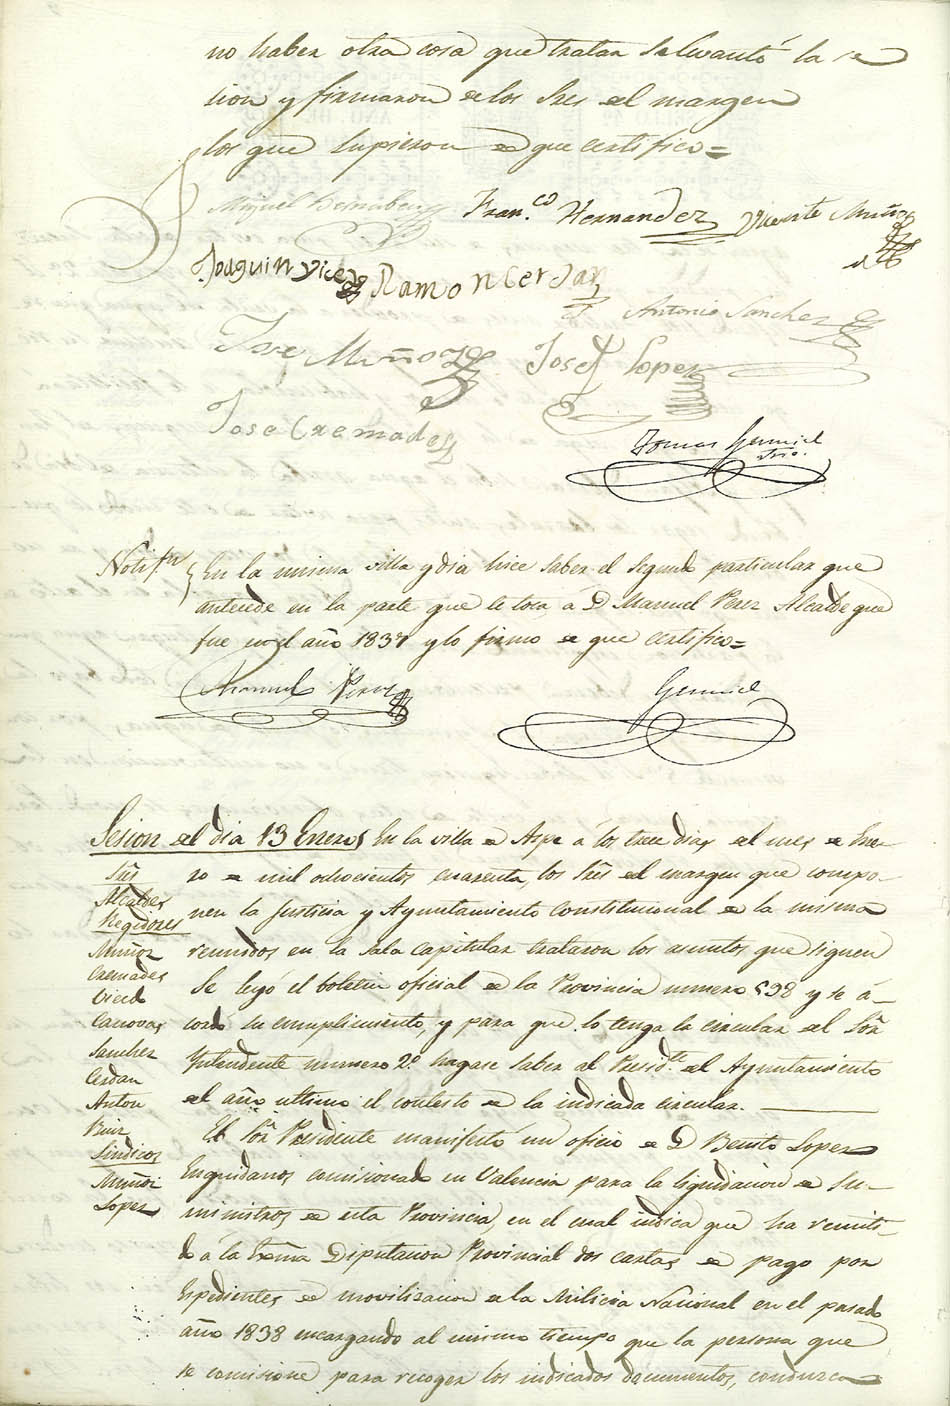 no haber otra cosa que tratar se levantó la se
sion y firmaron de los Sres del margen
los que supieron de que certifico =
Miguel Bernabeu Fran.co Hernandez Vicente Muñoz
Joaquin Vicedo Ramon Cerdan
Antonio Sanchez
Jose Muñoz Josef Lopez
Jose Cremades
Tomas Gumiel
Srio.
Notif.n En la misma villa y dia hice saber el segundo particular que
antecede en la parte que le toca á D Manuel Perez Alcalde que
fue en el año 1837 y lo firmo de que certifico =
Manuel Perez Gumiel
Sesion del dia 13 Enero En la villa de Aspe á los trece dias del mes de Ene-
ro de mil ochocientos cuarenta, los Sres del margen que compo-
nen la Justicia y Ayuntamiento constitucional de la misma
reunidos en la sala capitular trataron los asuntos que siguen
Se leyó el boletin oficial de la Provincia numero 598 y se a-
cordó su cumplimiento, y para que lo tenga la circular del Sor
Yntendente numero 2º hagase saber al Presid.te del Ayuntamiento
del año ultimo el contesto de la indicada circular.
El Sor Presidente manifestó un oficio de D Benito Lopez
Enguidanos comisionado en Valencia para la liquidacion de Su-
ministros de esta Provincia, en el cual indica que ha remiti-
do á la Exma Diputacion Provincial dos cartas de pago por
Espedientes de movilizacion de la Milicia Nacional en el pasado
año 1838 encargando al mismo tiempo que la persona que
se comisione para recoger los indicados documentos, conduzca
Sres
Alcaldes
Regidores
Muñoz
Cremades
Vicedo
Canovas
Sanchez
Cerdan
Anton
Ruiz
Sindicos
Muñoz
Lopez